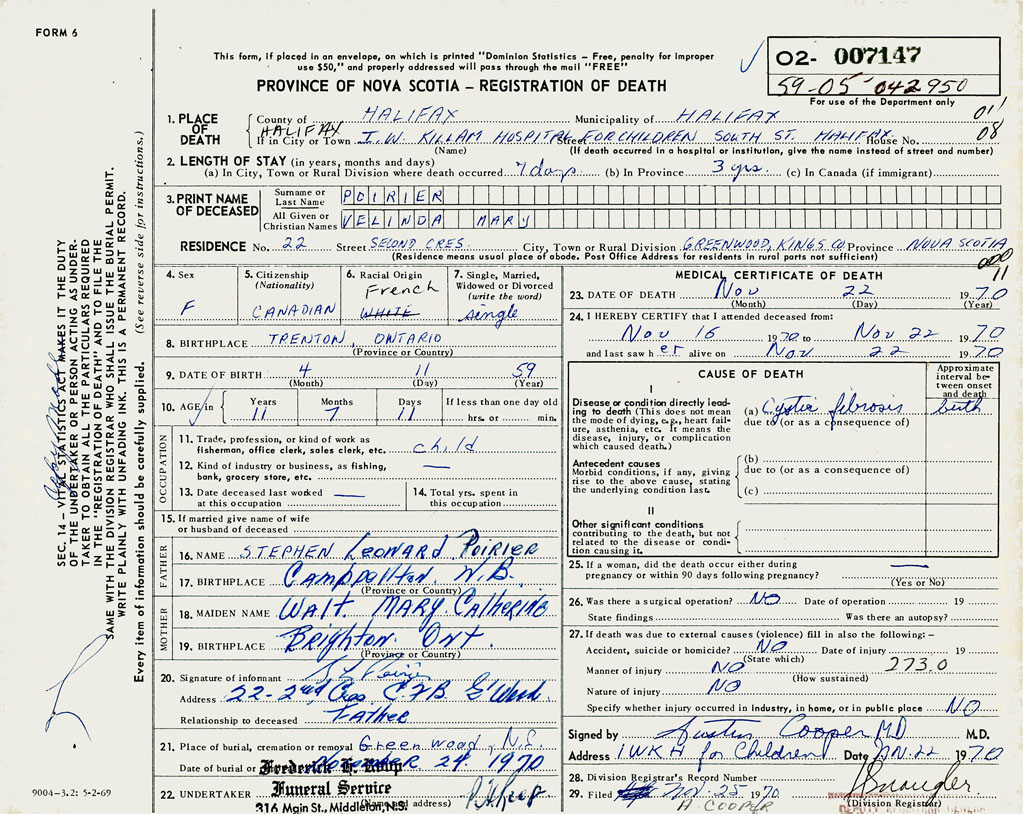 FORM 6
This form, if placed in an envelope, on which is printed "Dominion Statistics — Free, penalty for improper
use $50," and properly addressed will pass through the mail "FREE"
PROVINCE OF NOVA SCOTIA — REGISTRATION OF DEATH
02- 007147
59-05-042950
For use of the Department only
01
08
1. PLACE OF DEATH
County of HALIFAX Municipality of HALIFAX
HALIFAX
If in City or Town I.W. KILLAM HOSPITAL FOR CHILDREN Street SOUTH ST. HALIFAX House No.
(Name) (If death occurred in a hospital or institution, give the name instead of street and number)
2. LENGTH OF STAY (in years, months and days)
(a) In City, Town or Rural Division where death occurred 7 days (b) In Province 3 yrs. (c) In Canada (if immigrant)
3. PRINT NAME OF DECEASED
Surname or Last Name POIRIER
All Given or Christian Names VELINDA MARY
RESIDENCE No. 22 Street SECOND CRES. City, Town or Rural Division GREENWOOD, KINGS CO Province NOVA SCOTIA
(Residence means usual place of abode. Post Office Address for residents in rural parts not sufficient)
000
11
4. Sex
F
5. Citizenship
(Nationality)
CANADIAN
6. Racial Origin
French
WHITE
7. Single, Married,
Widowed or Divorced
(write the word)
single
8. BIRTHPLACE TRENTON, ONTARIO
(Province or Country)
9. DATE OF BIRTH 4 11 59
(Month) (Day) (Year)
10. AGE in
Years Months Days If less than one day old
11 7 11 hrs. or min.
OCCUPATION
11. Trade, profession, or kind of work as
fisherman, office clerk, sales clerk, etc. child
12. Kind of industry or business, as fishing,
bank, grocery store, etc. —
13. Date deceased last worked —
at this occupation
14. Total yrs. spent in
this occupation
15. If married give name of wife
or husband of deceased
FATHER
16. NAME STEPHEN Leonard Poirier
17. BIRTHPLACE Campbellton, N.B.
(Province or Country)
MOTHER
18. MAIDEN NAME Walt MARY Catherine
19. BIRTHPLACE Brighton Ont
(Province or Country)
20. Signature of informant
Address 22-2nd Cres C.F.B. G'Wood
Relationship to deceased Father
21. Place of burial, cremation or removal Greenwood, N.S.
Date of burial or November 24, 1970
22. UNDERTAKER
Frederick H. Roop
Funeral Service
316 Main St., Middleton, N.S.
(Name and address)
9004-3.2: 5-2-69
MEDICAL CERTIFICATE OF DEATH
23. DATE OF DEATH Nov 22 1970
(Month) (Day) (Year)
24. I HEREBY CERTIFY that I attended deceased from:
Nov 16 1970 to Nov 22 1970
and last saw her alive on Nov. 22 1970
CAUSE OF DEATH
Approximate
interval be-
tween onset
and death
I
Disease or condition directly lead-
ing to death (This does not mean
the mode of dying, e.g., heart fail-
ure, asthenia, etc. It means the
disease, injury, or complication
which caused death.)
(a) Cystic fibrosis birth
due to (or as a consequence of)
Antecedent causes
Morbid conditions, if any, giving
rise to the above cause, stating
the underlying condition last.
(b)
due to (or as a consequence of)
(c)
II
Other significant conditions
contributing to the death, but not
related to the disease or condi-
tion causing it.
25. If a woman, did the death occur either during
pregnancy or within 90 days following pregnancy? —
(Yes or No)
26. Was there a surgical operation? NO Date of operation 19
State findings Was there an autopsy?
27. If death was due to external causes (violence) fill in also the following:—
Accident, suicide or homicide? NO Date of injury 19
(State which)
Manner of injury NO 273.0
(How sustained)
Nature of injury NO
Specify whether injury occurred in industry, in home, or in public place NO
Signed by Austin Cooper MD M.D.
Address IWKH for Children Date Nov. 22 1970
28. Division Registrar's Record Number
29. Filed Nov 25 1970
A COOPER
(Division Registrar)
SEC. 14 — VITAL STATISTICS ACT MAKES IT THE DUTY
OF THE UNDERTAKER OR PERSON ACTING AS UNDER-
TAKER TO OBTAIN ALL THE PARTICULARS REQUIRED
IN THE "REGISTRATION OF DEATH" AND TO FILE THE
SAME WITH THE DIVISION REGISTRAR WHO SHALL ISSUE THE BURIAL PERMIT.
WRITE PLAINLY WITH UNFADING INK. THIS IS A PERMANENT RECORD.
Every item of information should be carefully supplied. (See reverse side for instructions.)